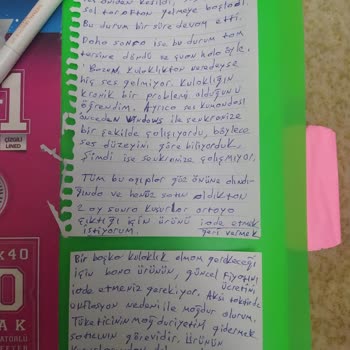 sol taraftan gelmeye başladı.
Bu durum bir süre devam etti.
Daha sonra ise bu durum tam
tersine döndü ve şuan hala öyle.
Bazen kulaklıktan neredeyse
hiç ses gelmiyor. Kulaklığın
kronik bir problemi olduğunu
öğrendim. Ayrıca ses kumandası
önceden Windows ile senkronize
bir şekilde çalışıyordu, böylece
ses düzeyini göre biliyorduk.
Şimdi ise senkronize çalışmıyor.
Tüm bu ayıplar göz önüne alındı-
ğında ve henüz satın aldıktan
2 ay sonra kusurlar ortaya
çıktığı için ürünü iade etmek
istiyorum. geri vermek
Bir başka kulaklık almam gerekeceği
için bana ürünün, güncel fiyatını
ücretini
iade etmeniz gerekiyor. Aksi takdirde
enflasyon nedeni ile mağdur olurum.
Tüketicinin mağduriyetini gidermek
satıcının görevidir. Ürünün
ÇİZGİLİ
LINED